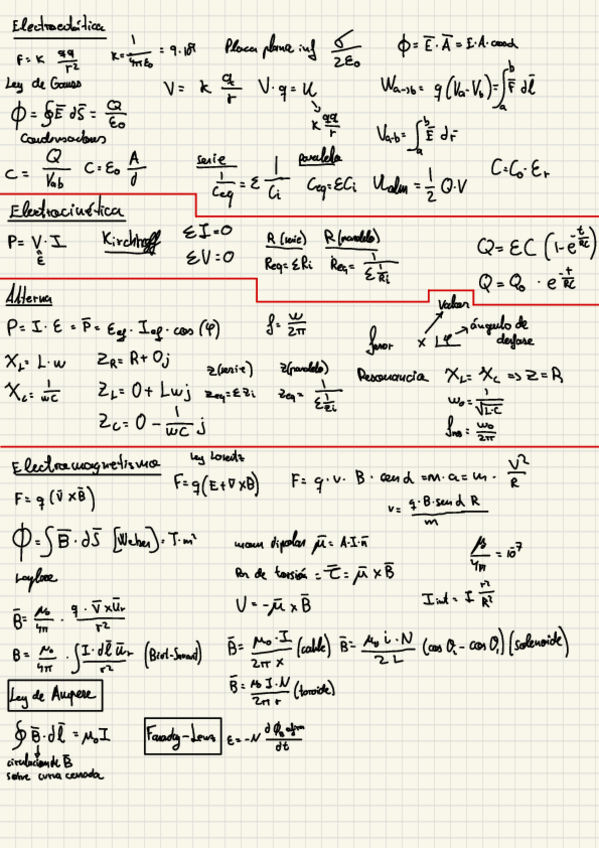 Electroestática
F = K qq/r² K = 1/4πε₀ = 9·10⁹ Placa plana inf σ/2ε₀ ϕ = E̅·A̅ = E·A·cosα
Ley de Gauss
V = K q/r V·q = U W a→b = q(Va-Vb) = ∫ₐᵇ F̅ dl̅
K qq/r
ϕ = ∮E̅ dS̅ = Q/ε₀
Va-b = ∫ₐᵇ E̅ dr̅
Condensadores
C = Q/Vab C = ε₀ A/d serie 1/Ceq = Σ 1/Ci paralelo Ceq = ΣCi Ualm = 1/2 Q·V C = C₀·εr
Electrocinética
P = V·I Kirchhoff ΣI = 0 R (serie) R (paralelo) Q = εC (1-e^-t/RC)
ε ΣV = 0 Req = ΣRi Req = 1/Σ 1/Ri Q = Q₀ · e^-t/RC
Alterna
Valor
P = I·ε = P̅ = εef · Ief · cos(φ) f = w/2π fasor x ∟φ → ángulo de desfase
XL = L·w ZR = R + 0j Z(serie) Z(paralelo) Resonancia XL = XC => Z = R
XC = 1/wC ZL = 0 + Lwj Zeq = ΣZi Zeq = 1/Σ 1/Zi w₀ = 1/√L·C
ZC = 0 - 1/wC j = w₀/2π
Electromagnetismo Ley Lorentz
F = q(v̅ x B̅) F = q(E + v̅ x B) F = q·v·B·senα = m·a = m · V²/R
v = q·B·senα R/m
Φ = ∫B̅·dS̅ [Weber] = T·m² mom dipolar μ̅ = A·I·n̅ μ/4π = 10⁻⁷
Par de torsión = τ̅ = μ̅ x B̅
U = -μ̅ x B̅ I int = I r²/R²
B̅ = μ₀/4π · q·v̅ x u̅r/r²
B = μ₀/4π · ∫ I·dl̅ u̅r/r² (Biot-Savart) B̅ = μ₀·I/2π x (cable) B̅ = μ₀ i·N/2L (cos θ₁ - cos θ₂) (solenoide)
B̅ = μ₀ I·N/2π r (toroide)
Ley de Ampere
∮ B̅·dl̅ = μ₀ I Faraday-Lenz ε = -N dϕ/dt
circulación de B̅
sobre curva cerrada